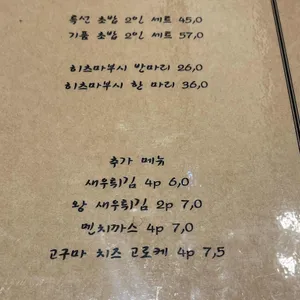 특선 초밥 2인 세트 45,0
기품 초밥 2인 세트 57,0
히츠마부시 반마리 26,0
히츠마부시 한 마리 36,0
추가 메뉴
새우튀김 4p 6,0
왕 새우튀김 2p 7,0
멘치까스 4p 7,0
고구마 치즈 고로케 4p 7,5